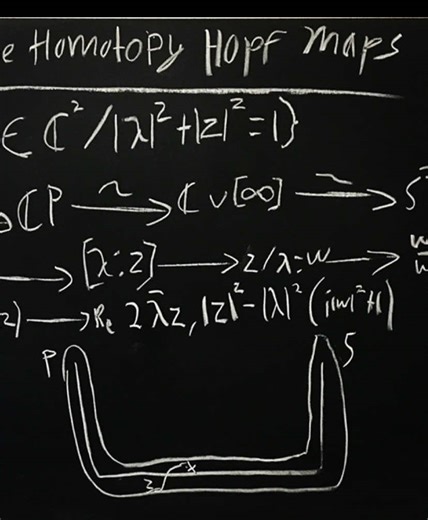 e Homotopy Hopf Maps
∈ ℂ²/|λ|²+|z|²=1}
ℂP ~→ ℂ∪[∞] ~→ S
→ [λ:z] → z/λ=w → w
z) → Re 2λ̄z, |z|²-|λ|² (
P S
3 x